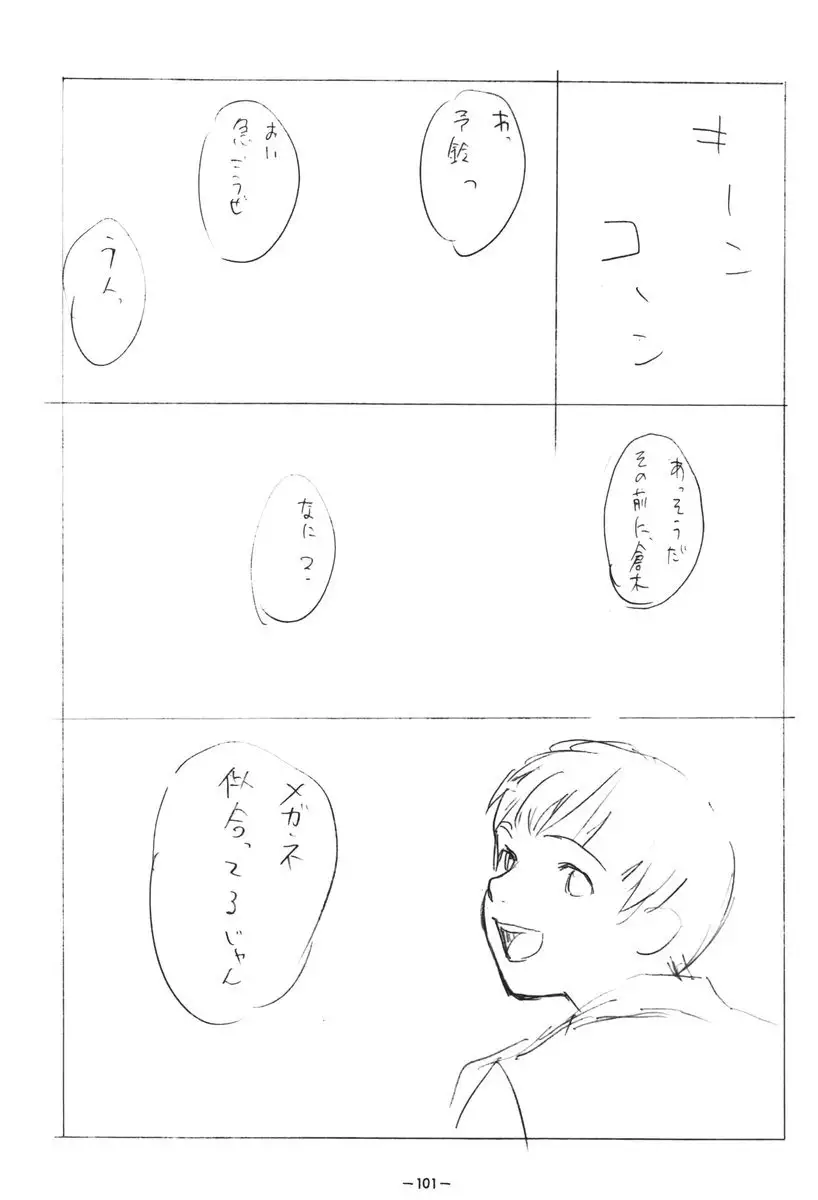 キーン
コーン
あ、
予鈴っ
おい
急ごうぜ
うん。
あっそうだ
その前に、倉木
なに?
メガネ
似合ってるじゃん
-101-